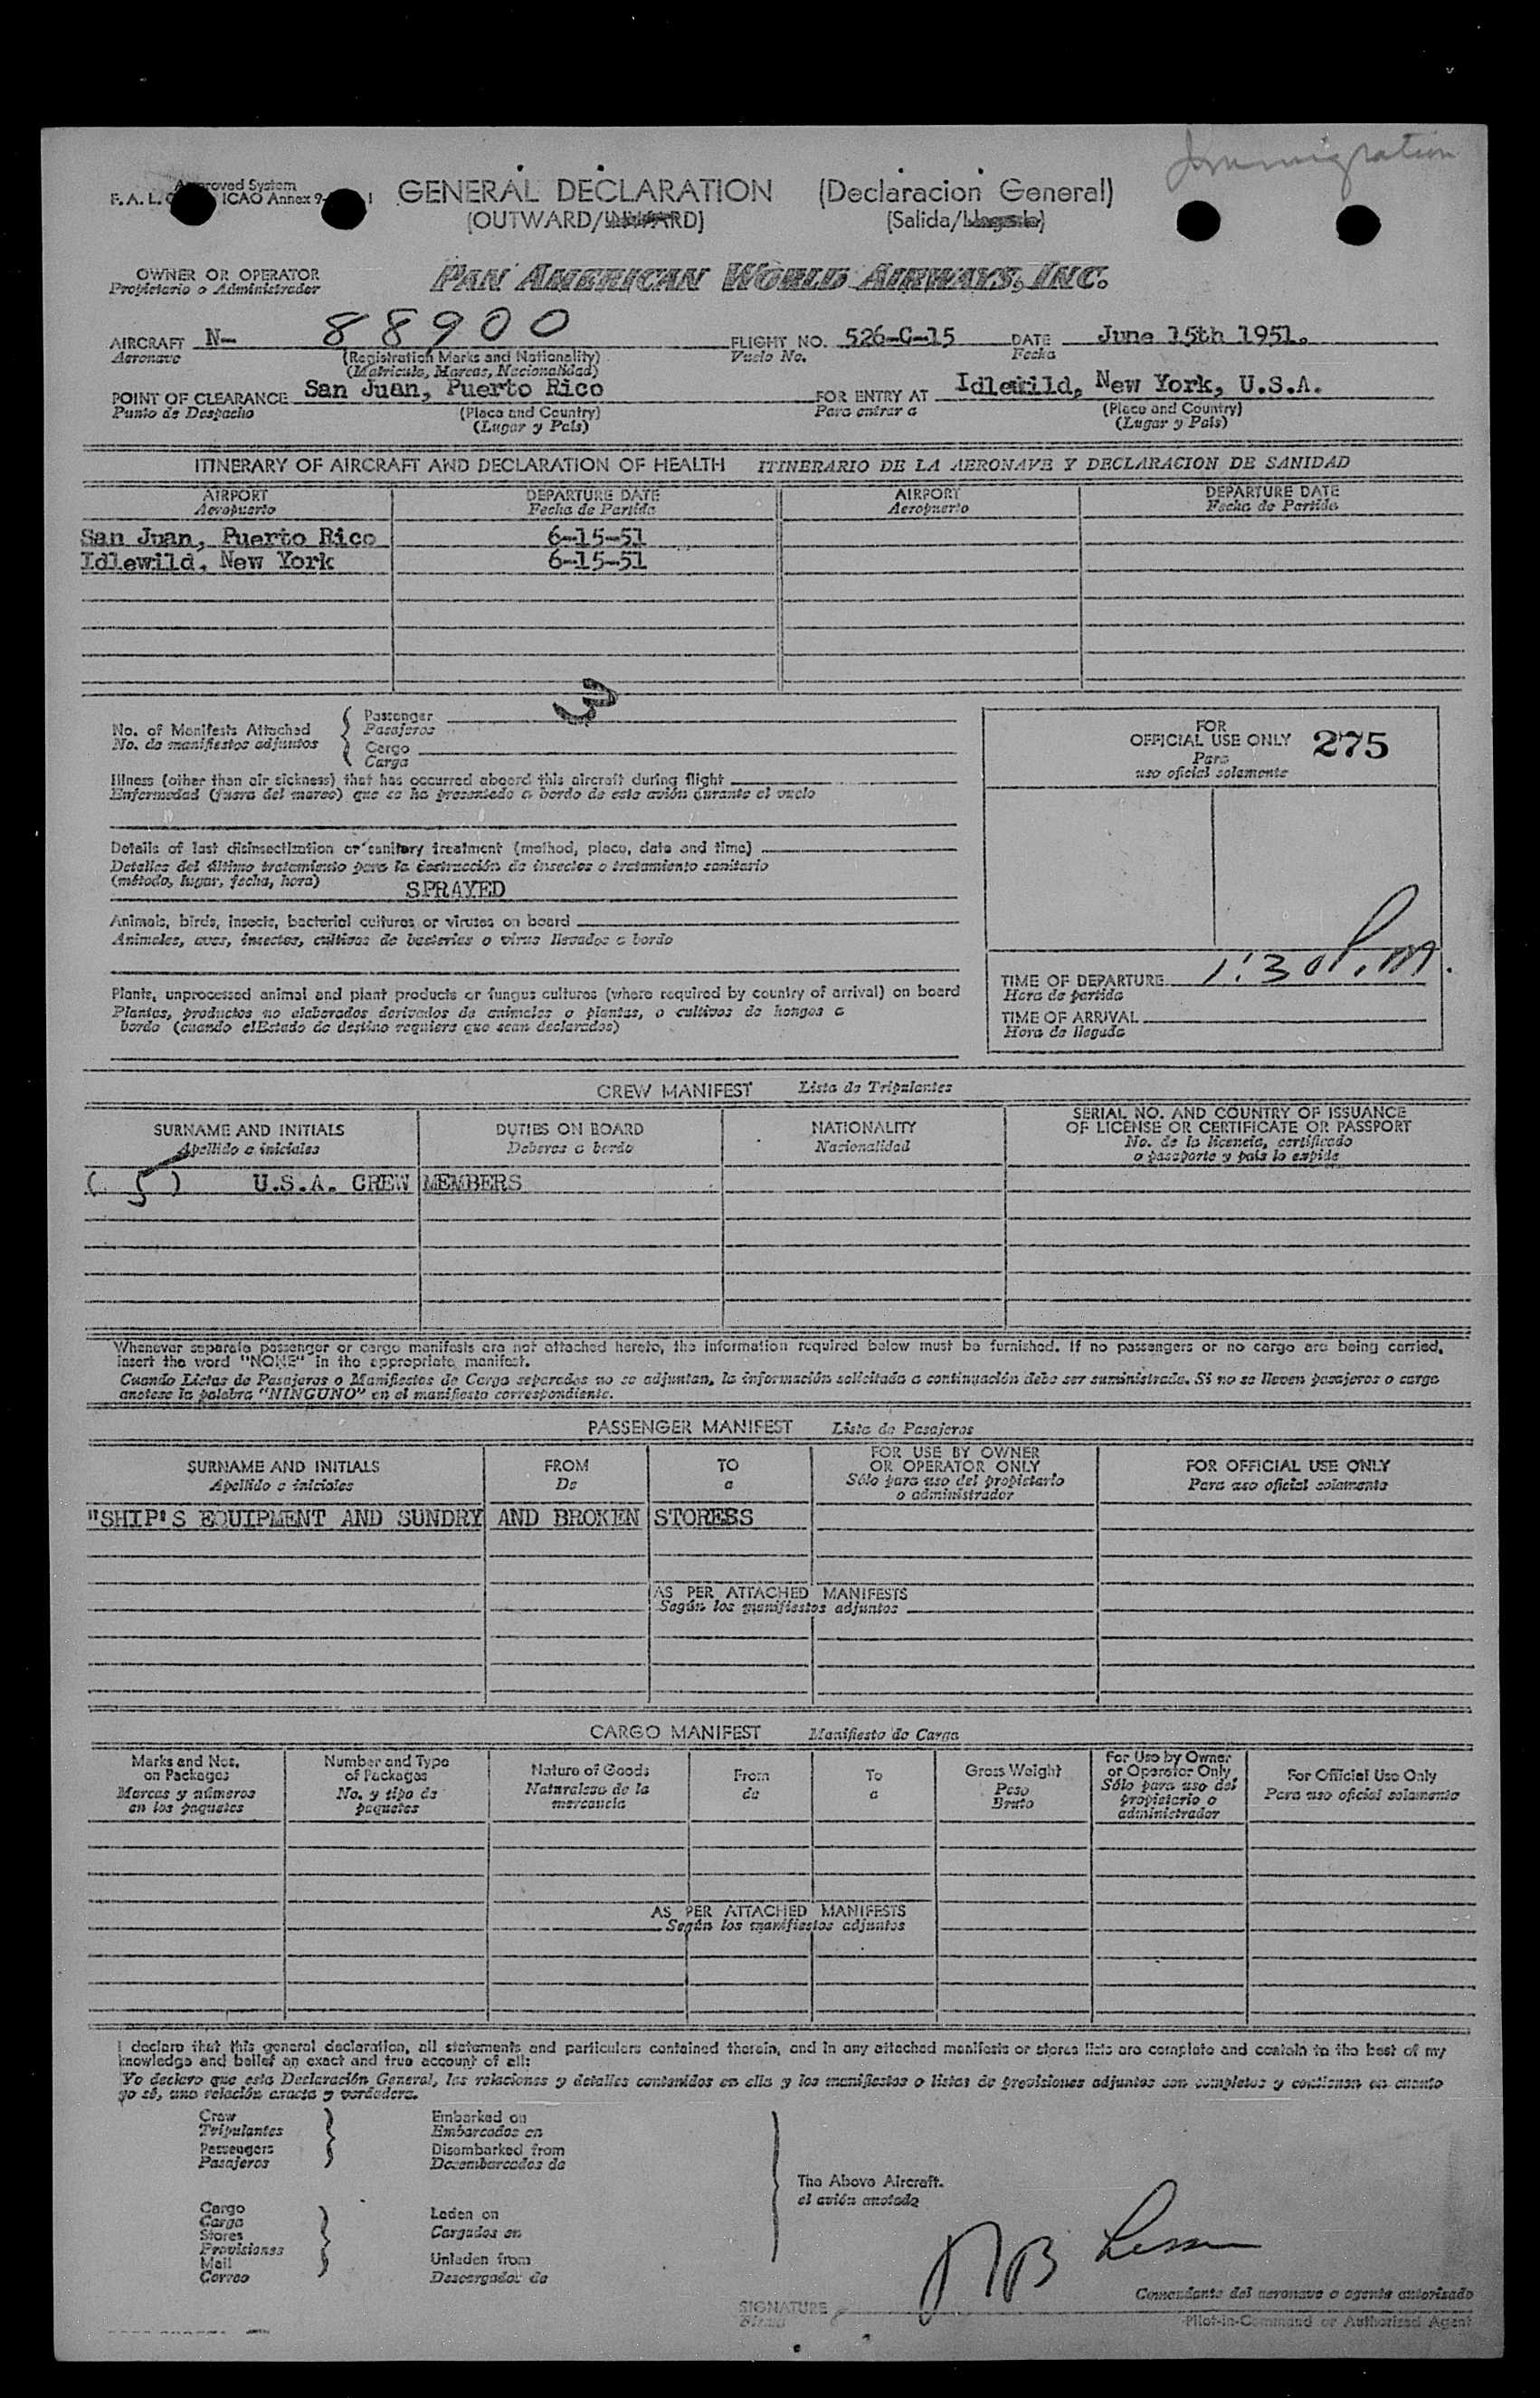 Immigration
Approved System
F. A. L. ICAO Annex 9-
GENERAL DECLARATION (Declaracion General)
(OUTWARD/INWARD) (Salida/Llegada)
OWNER OR OPERATOR
Propietario o Administrador
PAN AMERICAN WORLD AIRWAYS, INC.
AIRCRAFT N- 88900 FLIGHT NO. 526-C-15 DATE June 15th 1951.
Aeronave (Registration Marks and Nationality) Vuelo No. Fecha
(Matricula, Marcas, Nacionalidad)
POINT OF CLEARANCE San Juan, Puerto Rico FOR ENTRY AT Idlewild, New York, U.S.A.
Punto de Despacho (Place and Country) Para entrar a (Place and Country)
(Lugar y País) (Lugar y País)
ITINERARY OF AIRCRAFT AND DECLARATION OF HEALTH ITINERARIO DE LA AERONAVE Y DECLARACION DE SANIDAD
AIRPORT DEPARTURE DATE AIRPORT DEPARTURE DATE
Aeropuerto Fecha de Partida Aeropuerto Fecha de Partida
San Juan, Puerto Rico 6-15-51
Idlewild, New York 6-15-51
No. of Manifests Attached
No. de manifiestos adjuntos
Passenger 3
Pasajeros
Cargo
Carga
Illness (other than air sickness) that has occurred aboard this aircraft during flight
Enfermedad (fuera del mareo) que se ha presentado a bordo de este avión durante el vuelo
Details of last disinsectization or sanitary treatment (method, place, date and time)
Detalles del último tratamiento para la destrucción de insectos o tratamiento sanitario
(método, lugar, fecha, hora)
SPRAYED
Animals, birds, insects, bacterial cultures or viruses on board
Animales, aves, insectos, cultivos de bacterias o virus llevados a bordo
Plants, unprocessed animal and plant products or fungus cultures (where required by country of arrival) on board
Plantas, productos no elaborados derivados de animales o plantas, o cultivos de hongos a
bordo (cuando elEstado de destino requiera que sean declarados)
FOR
OFFICIAL USE ONLY 275
Para
uso oficial solamente
TIME OF DEPARTURE 1:30 P.M.
Hora de partida
TIME OF ARRIVAL
Hora de llegada
CREW MANIFEST Lista de Tripulantes
SURNAME AND INITIALS DUTIES ON BOARD NATIONALITY SERIAL NO. AND COUNTRY OF ISSUANCE
OF LICENSE OR CERTIFICATE OR PASSPORT
Apellido e iniciales Deberes a bordo Nacionalidad No. de la licencia, certificado
o pasaporte y país lo expide
( 5 ) U.S.A. CREW MEMBERS
Whenever separate passenger or cargo manifests are not attached hereto, the information required below must be furnished. If no passengers or no cargo are being carried,
insert the word "NONE" in the appropriate manifest.
Cuando Listas de Pasajeros o Manifiestos de Carga separados no se adjuntan, la información solicitada a continuación debe ser suministrada. Si no se lleven pasajeros o carga
anotese la palabra "NINGUNO" en el manifiesto correspondiente.
PASSENGER MANIFEST Lista de Pasajeros
SURNAME AND INITIALS FROM TO FOR USE BY OWNER
OR OPERATOR ONLY FOR OFFICIAL USE ONLY
Apellido e iniciales De a Sólo para uso del propietario
o administrador Para uso oficial solamente
"SHIP'S EQUIPMENT AND SUNDRY AND BROKEN STORESS
AS PER ATTACHED MANIFESTS
Según los manifiestos adjuntos
CARGO MANIFEST Manifiesto de Carga
Marks and Nos.
on Packages
Marcas y números
en los paquetes
Number and Type
of Packages
No. y tipo de
paquetes
Nature of Goods
Naturaleza de la
mercancia
From
de
To
a
Gross Weight
Peso
Bruto
For Use by Owner
or Operator Only
Sólo para uso del
propietario o
administrador
For Official Use Only
Para uso oficial solamente
AS PER ATTACHED MANIFESTS
Según los manifiestos adjuntos
I declare that this general declaration, all statements and particulars contained therein, and in any attached manifests or stores lists are complete and contain to the best of my
knowledge and belief an exact and true account of all:
Yo declaro que esta Declaración General, las relaciones y detalles contenidos en ella y los manifiestos o listas de provisiones adjuntos son completos y contienen en cuanto
yo sé, una relación exacta y verdadera.
Crew
Tripulantes
Passengers
Pasajeros
Embarked on
Embarcados en
Disembarked from
Desembarcados de
The Above Aircraft.
el avión anotado
Cargo
Carga
Stores
Provisiones
Mail
Correo
Laden on
Cargados en
Unladen from
Descargados de
SIGNATURE
Firma
Comandante del aeronave o agente autorizado
Pilot-in-Command or Authorized Agent